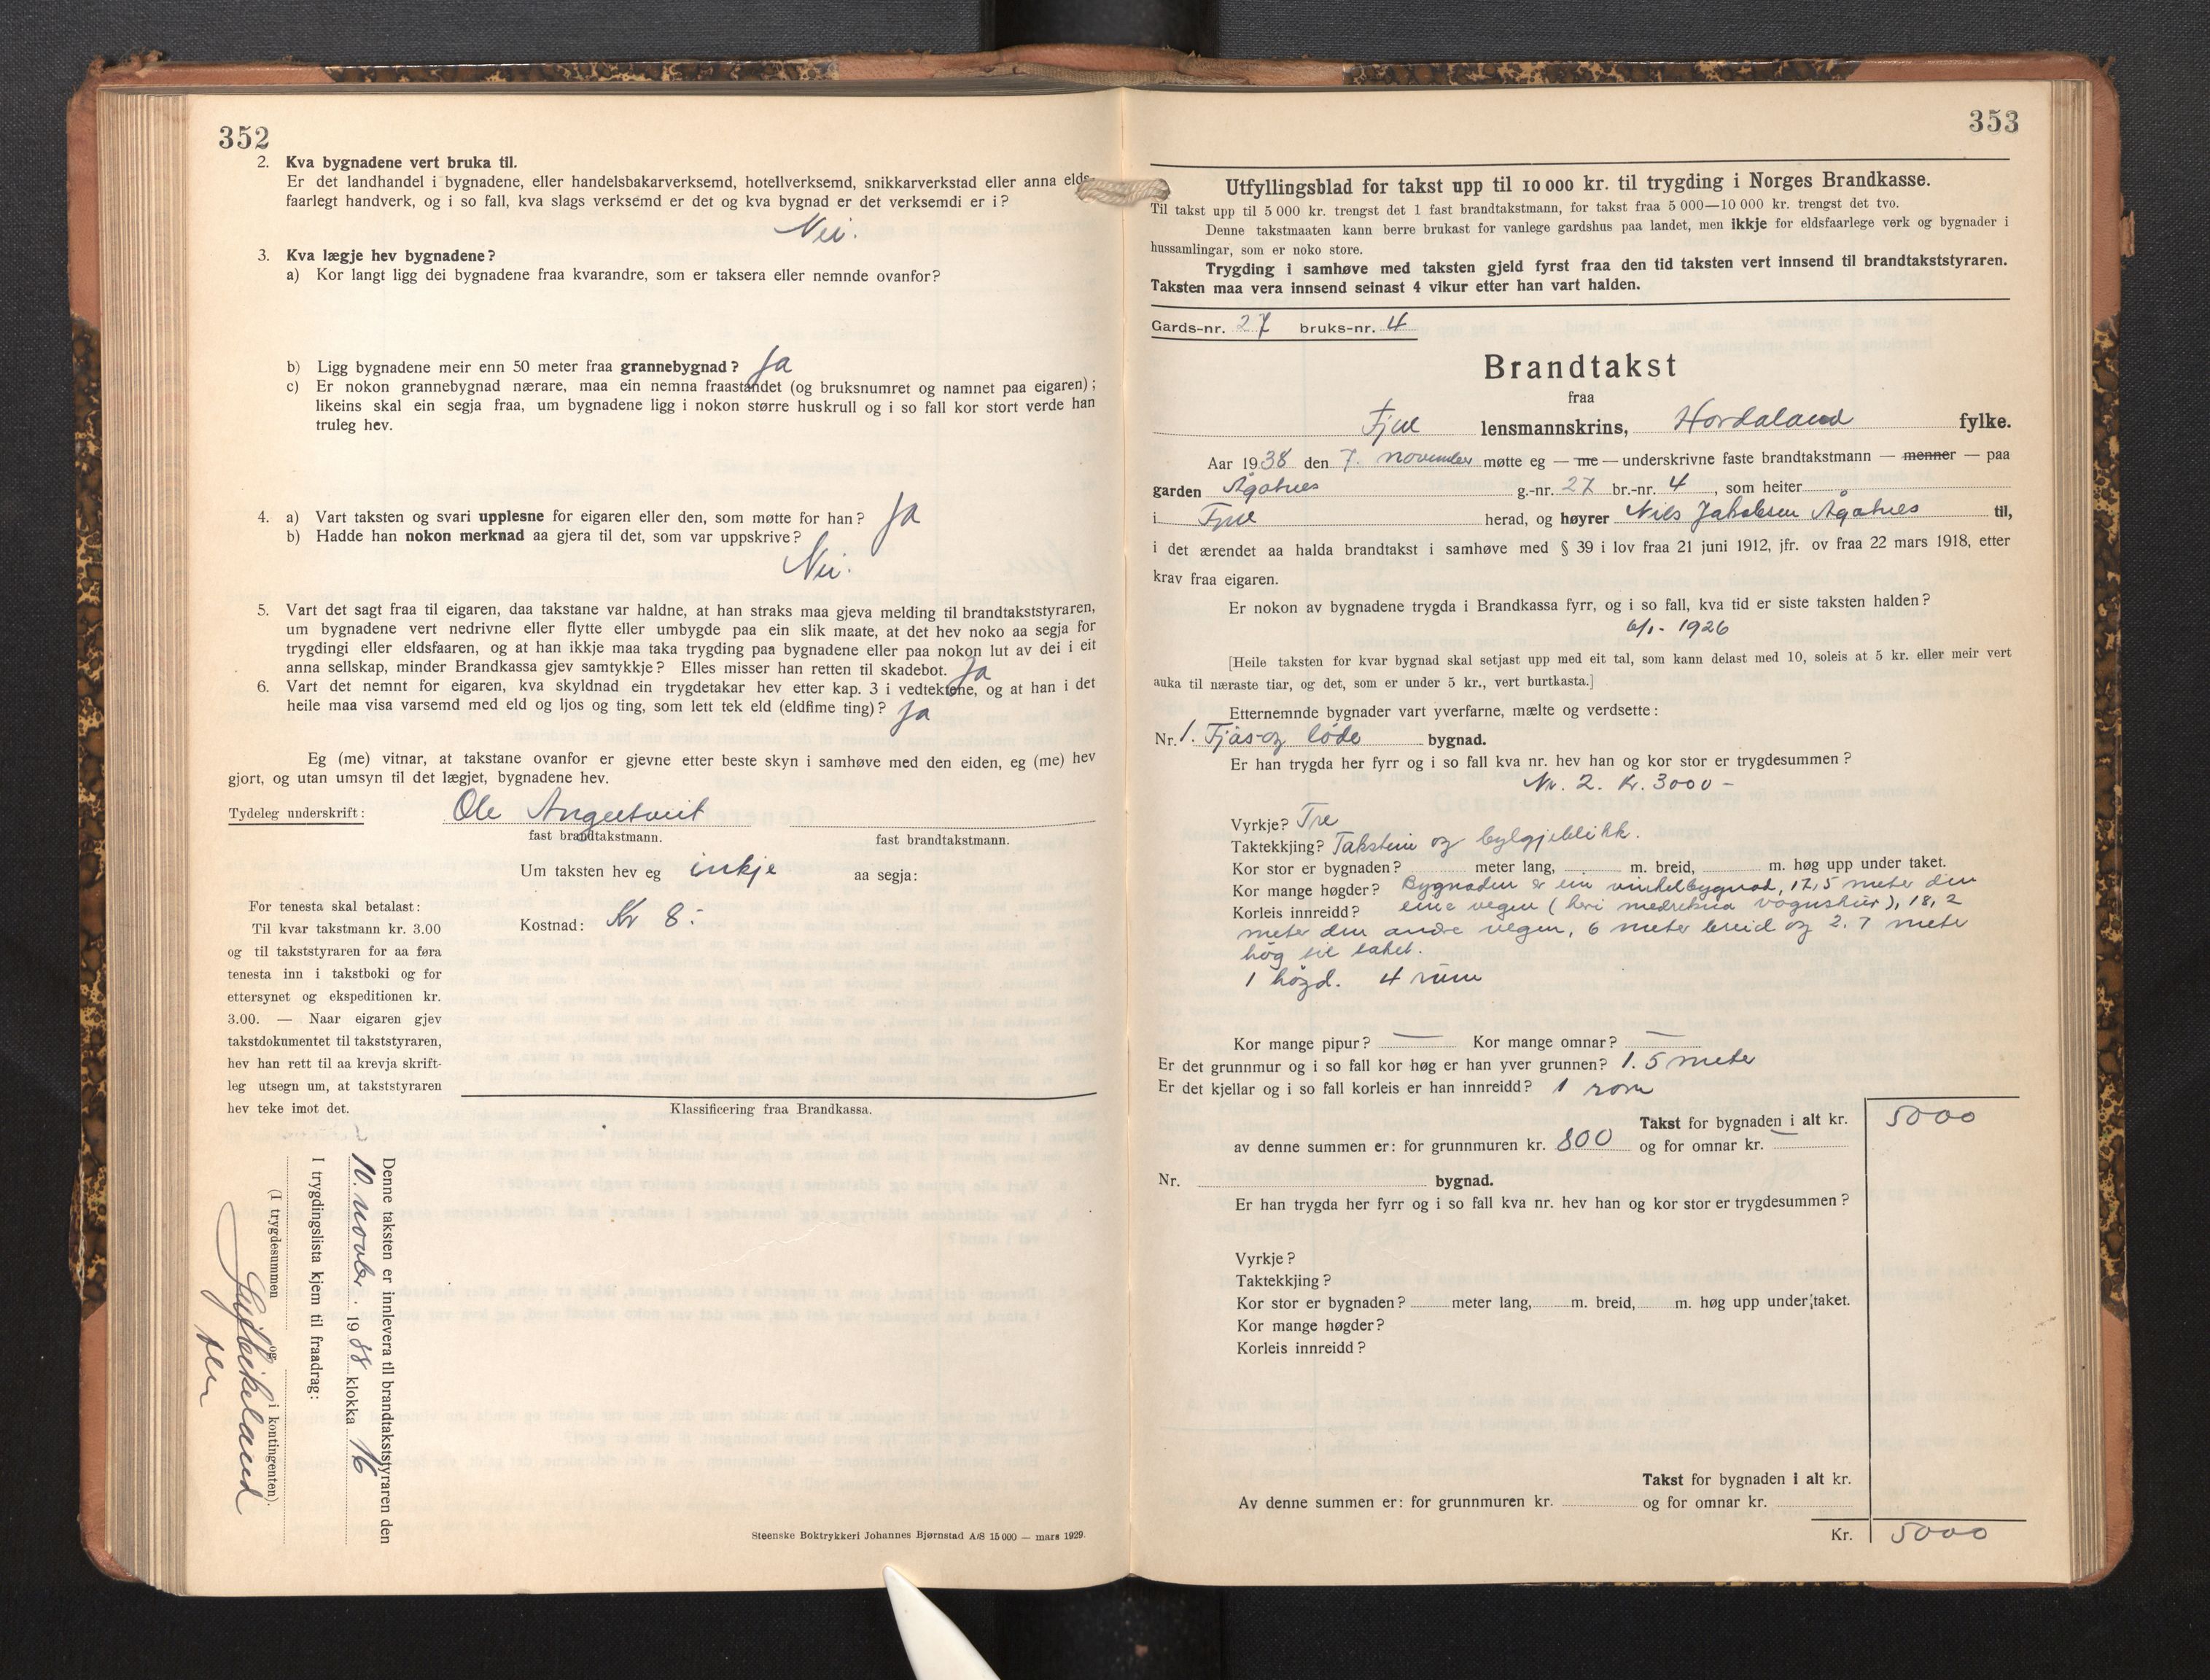 352
2. Kva bygnadene vert bruka til.
Er det landhandel i bygnadene, eller handelsbakarverksemd, hotellverksemd, snikkarverkstad eller anna elds-
faarlegt handverk, og i so fall, kva slags verksemd er det og kva bygnad er det verksemdi er i?
Nei.
3. Kva lægje hev bygnadene?
a) Kor langt ligg dei bygnadene fraa kvarandre, som er taksera eller nemnde ovanfor?
b) Ligg bygnadene meir enn 50 meter fraa grannebygnad? Ja
c) Er nokon grannebygnad nærare, maa ein nemna fraastandet (og bruksnumret og namnet paa eigaren);
likeins skal ein segja fraa, um bygnadene ligg i nokon større huskrull og i so fall kor stort verde han
truleg hev.
4. a) Vart taksten og svari upplesne for eigaren eller den, som møtte for han? Ja
b) Hadde han nokon merknad aa gjera til det, som var uppskrive?
Nei.
5. Vart det sagt fraa til eigaren, daa takstane var haldne, at han straks maa gjeva melding til brandtakststyraren,
um bygnadene vert nedrivne eller flytte eller umbygde paa ein slik maate, at det hev noko aa segja for
trygdingi eller eldsfaaren, og at han ikkje maa taka trygding paa bygnadene eller paa nokon lut av dei i eit
anna sellskap, minder Brandkassa gjev samtykkje? Elles misser han retten til skadebot. Ja
6. Vart det nemnt for eigaren, kva skyldnad ein trygdetakar hev etter kap. 3 i vedtektone, og at han i det
heile maa visa varsemd med eld og ljos og ting, som lett tek eld (eldfime ting)? Ja
Eg (me) vitnar, at takstane ovanfor er gjevne etter beste skyn i samhøve med den eiden, eg (me) hev
gjort, og utan umsyn til det lægjet, bygnadene hev.
Tydeleg underskrift: Ole Angeltveit
fast brandtakstmann. fast brandtakstmann.
Um taksten hev eg inkje aa segja:
Kostnad: Kr 8:-
For tenesta skal betalast:
Til kvar takstmann kr. 3.00
og til takststyraren for aa føra
tenesta inn i takstboki og for
ettersynet og ekspeditionen kr.
3.00. — Naar eigaren gjev
takstdokumentet til takststyraren,
hev han rett til aa krevja skrift-
leg utsegn um, at takststyraren
hev teke imot det.
Klassificering fraa Brandkassa.
Denne taksten er innlevera til brandtakststyraren den
10. novbr. 1938 klokka 16
I trygdingslista kjem til fraadrag:
(I trygdesummen og i kontingenten).
Steenske Boktrykkeri Johannes Bjørnstad A/S 15 000 — mars 1929.
353
Utfyllingsblad for takst upp til 10 000 kr. til trygding i Norges Brandkasse.
Til takst upp til 5 000 kr. trengst det 1 fast brandtakstmann, for takst fraa 5 000—10 000 kr. trengst det tvo.
Denne takstmaaten kann berre brukast for vanlege gardshus paa landet, men ikkje for eldsfaarlege verk og bygnader i
hussamlingar, som er noko store.
Trygding i samhøve med taksten gjeld fyrst fraa den tid taksten vert innsend til brandtakststyraren.
Taksten maa vera innsend seinast 4 vikur etter han vart halden.
Gards-nr. 27 bruks-nr. 4
Brandtakst
fraa
Fjell lensmannskrins, Hordaland fylke.
Aar 1938 den 7. november møtte eg — me — underskrivne faste brandtakstmann — menner — paa
garden Ågotnes g.-nr. 27 br.-nr. 4, som heiter
i Fjell herad, og høyrer Nils Jakobsen Ågotnes til,
i det ærendet aa halda brandtakst i samhøve med § 39 i lov fraa 21 juni 1912, jfr. ov fraa 22 mars 1918, etter
krav fraa eigaren.
Er nokon av bygnadene trygda i Brandkassa fyrr, og i so fall, kva tid er siste taksten halden?
6/1- 1926
[Heile taksten for kvar bygnad skal setjast upp med eit tal, som kann delast med 10, soleis at 5 kr. eller meir vert
auka til næraste tiar, og det, som er under 5 kr., vert burtkasta.]
Etternemnde bygnader vart yverfarne, mælte og verdsette:
Nr. 1. Fjøs- og løde bygnad.
Er han trygda her fyrr og i so fall kva nr. hev han og kor stor er trygdesummen?
Nr. 2. Kr. 3000 -
Vyrkje? Tre
Taktekkjing? Takstein og bylgjeblikk.
Kor stor er bygnaden? meter lang, m. breid, m. høg upp under taket.
Kor mange høgder? Bygnaden er ein vinkelbygnad, 17,5 meter den
Korleis innreidd? eine vegen (heri medrekna vognskur), 18,2
meter den andre vegen, 6 meter breid og 2.7 meter
høg til taket.
1 høgd. 4 rum
Kor mange pipur? — Kor mange omnar? —
Er det grunnmur og i so fall kor høg er han yver grunnen? 1.5 meter
Er det kjellar og i so fall korleis er han innreidd? 1 rom
Takst for bygnaden i alt kr. 5000
av denne summen er: for grunnmuren kr. 800 og for omnar kr. —
Nr. bygnad.
Er han trygda her fyrr og i so fall kva nr. hev han og kor stor er trygdesummen?
Vyrkje?
Taktekkjing?
Kor stor er bygnaden? meter lang, m. breid, m. høg upp under taket.
Kor mange høgder?
Korleis innreidd?
Takst for bygnaden i alt kr.
Av denne summen er: for grunnmuren kr. og for omnar kr.
Kr. 5000